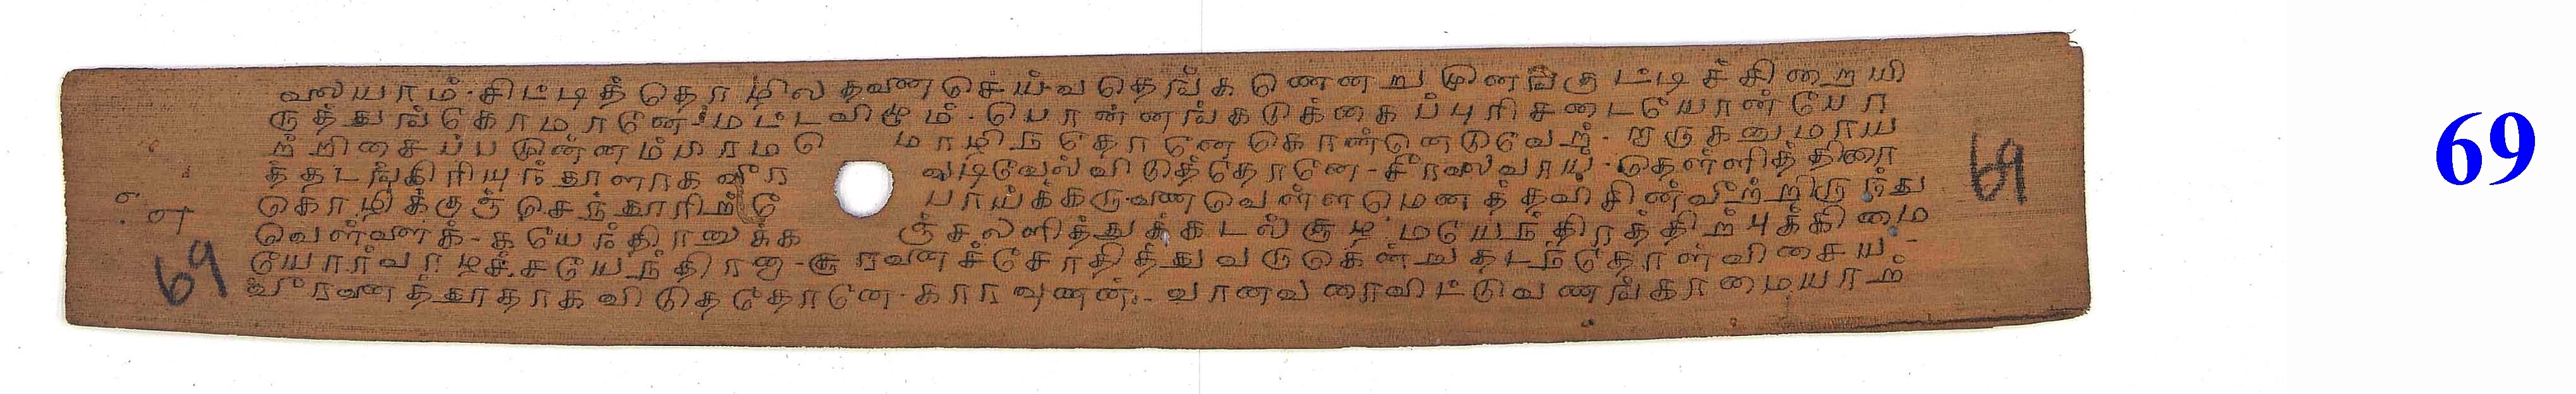 வலயாம்-சிட்டித் தொழில தவணசெய்வதெங்க ணெனறு முனங்குட்டிச் சிறையி
ருத்துங்கோமானே-மட்டவிழும்-பொன்னங்கடுக்கைப்புரிசடையோன் போ
ற்றிசைப்பமுன்னம்பரமகு மாழிநதோனே கொண்னெடுவேற்-றருகனுமாய
த்தடங்கிரியுந்தாளாக வீர வடிவேல் விடுத்தோனே-சீரலைவாய்-தெள்ளித்திரை
கொழிக்குஞ் செந்தூரிற்போ பாய்க்கருணவெள்ளமெனத்தவிசின்வீற்றிருந்து
வெள்ளைக்-கயேந்திரனுக்க ஞ்சலளித்துக்கடல்சூழ் மயேந்திரத்திற்புக்கிமை
யோர்வாழச்சயேந்திரனாஞ்-சூரவனச்சோதித்துவருகென்று தடந்தோள்விசைய-
வீரவனத்தூதாகவிடுததோனே-காரவுணன்-வானவரைவிட்டுவணங்காமையாற்
69
69
69